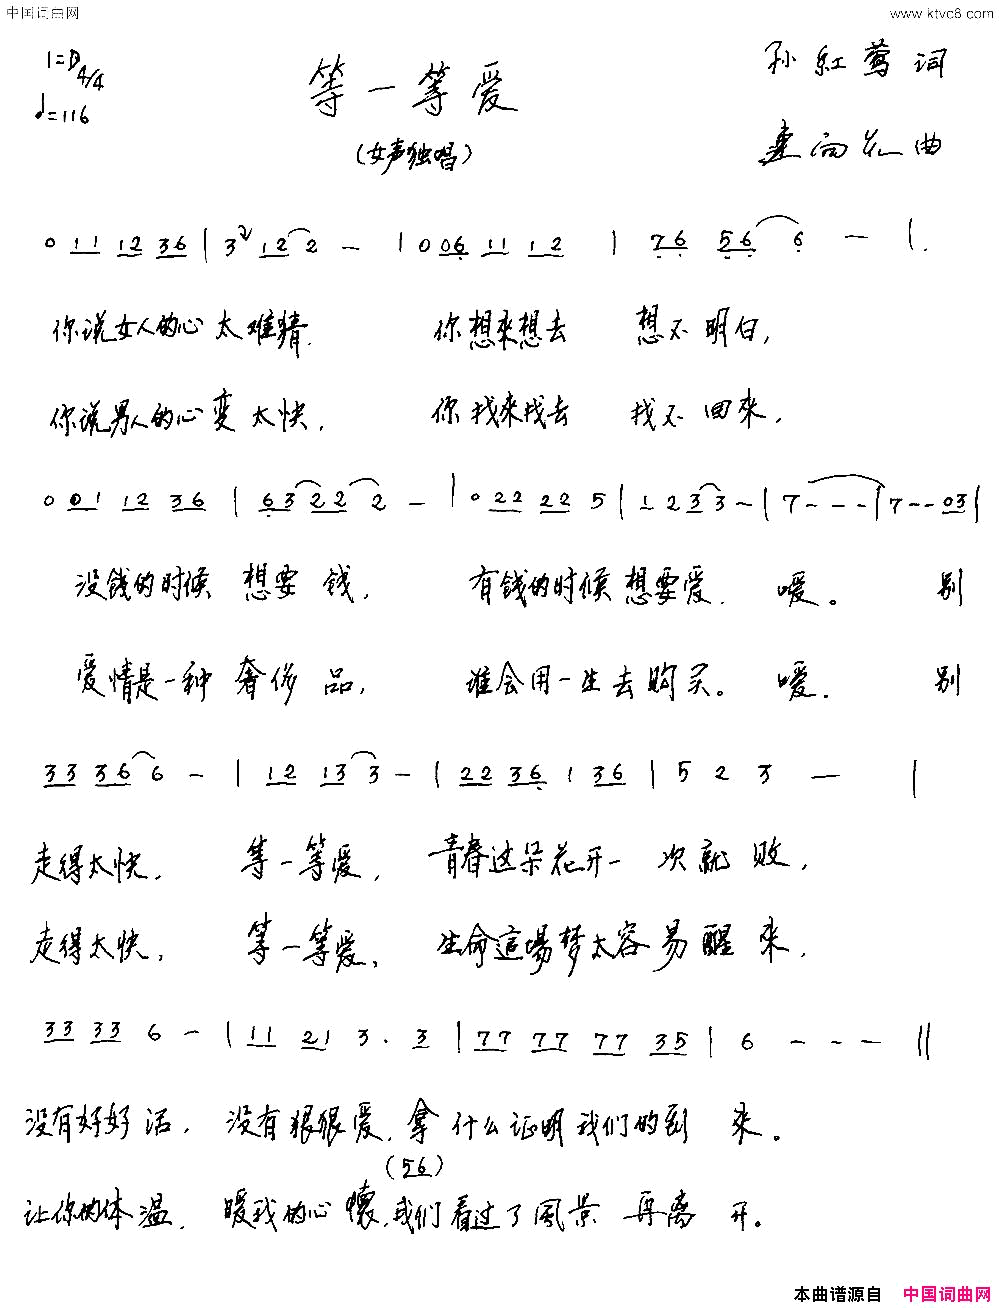 中国词曲网 www.ktvc8.com
1=D 4/4
♩=116
等一等爱
(女声独唱)
孙红莺词
向 曲
0 11 12 36 | 3 2 12 2 - | 0 06 11 12 | 76 56 6 - |
你说女人的心太难猜, 你想来想去 想不明白,
你说男人的心变太快, 你找来找去 找不回来,
0 01 12 36 | 63 22 2 - | 0 22 22 5 | 1 23 3 - | 7 - - - | 7 - - 03 |
没钱的时候 想要钱, 有钱的时候想要爱. 嗳。 别
爱情是一种奢侈品, 谁会用一生去购买。 嗳. 别
33 36 6 - | 12 13 3 - | 22 36 1 36 | 5 2 3 - |
走得太快, 等一等爱, 青春这朵花开一次就败,
走得太快, 等一等爱, 生命這場梦太容易醒来,
33 33 6 - | 11 21 3 . 3 | 77 77 77 35 | 6 - - - ||
没有好好活, 没有狠狠爱, 拿什么证明我们的到来。
(56)
让你的体温, 暖我的心懷, 我们看过了風景再离开。
本曲谱源自 中国词曲网